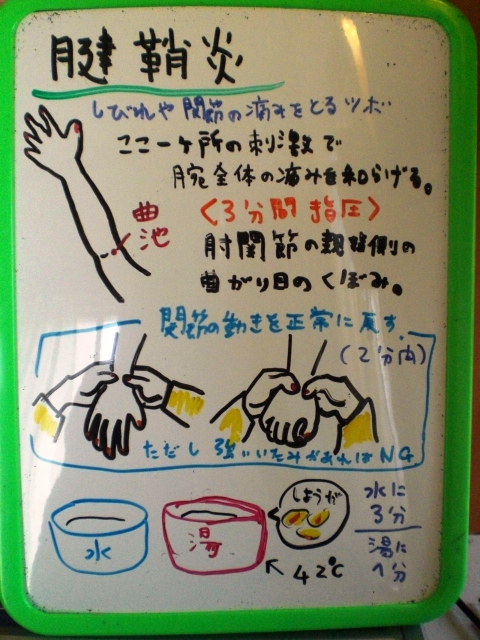 腱鞘炎
しびれや関節の痛みをとるツボ
ここ一ヶ所の刺激で
腕全体の痛みを和らげる。
曲池
〈3分間指圧〉
肘関節の親指側の
曲がり目のくぼみ。
関節の動きを正常に戻す。
(2分内)
ただし 強いいたみがあればNG
水
湯
しょうが
42℃
水に
3分
湯に
1分